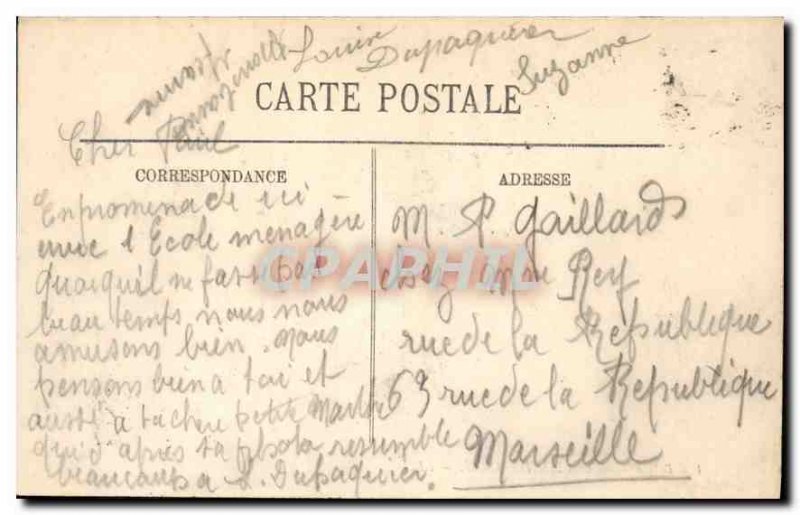 Louise
Dupaquier
Suzanne
CARTE POSTALE
Cher Paul
CORRESPONDANCE
En promenade ici
avec l Ecole menagère
quoiqu'il ne fasse pas
beau temps nous nous
amusons bien. Nous
pensons bien a toi et
aussi à ta chère petite
qui d'après ta photo ressemble
beaucoup a L. Dupaquier.
ADRESSE
M. P. Gaillard
chez Mme Rey
rue de la République
63 rue de la Republique
Marseille
CPAPHIL